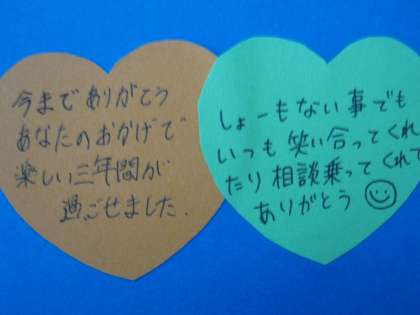 今までありがとう
あなたのおかげで
楽しい三年間が
過ごせました.
しょーもない事でも
いつも笑い合ってくれ
たり相談乗ってくれて
ありがとう